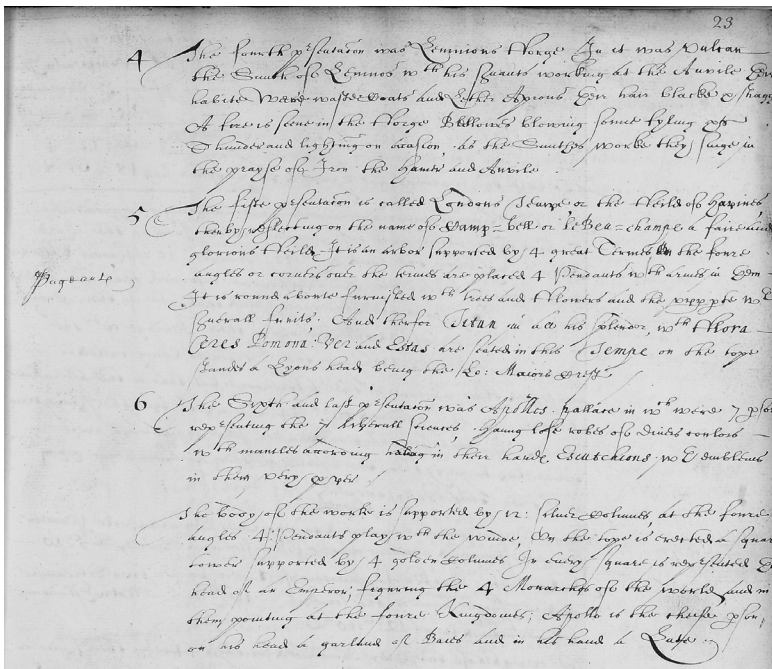 23
4 The fourth p[re]sentacon was Lemnions fforge In it was Vulcan
the Smith of Lemnos wth his s[er]uants working at the Anvile their
habite were wastecoats and Lether Aprons their hair blacke & shaggy
A fire is seene in the fforge Bellowes blowing some fyling
Thunder and lightning on occasion, as the Smithes worke they singe in
the prayse of Iron the Hamer and Anvile
5 The fifte p[re]sentacon is called Londons Tempe or the ffeild of Hapines,
therby reflecting on the name of Camp=bell or Le Beu=champe a faire and
glorious ffeild, It is an arbor supported by 4 great Termes On the foure
angles or corners over the termes are placed 4 Pendants wth armes in them
Pageante
It is round aboute furnished wth trees and fflowers and the wth
seuerall fruits. And therfor Titan in all his splendor, wth fflora
Ceres Pomona, Ver and Estas are seated in this Tempe on the tope
standes a Lyons head being the Lo: Maiors Crest
6 The Sixth and last p[re]sentacon was Apollos pallace in wch were 7 p[er]sons
representing the 7 liberall sciences, Hauing lose robes of diuers coulors
wth mantles according in their hands Escutchions wth Emblems
in them very p[ro]per
The body of the worke is supported by 12: siluer Columes, at the foure
angles 4: Pendants play wth the winde, On the tope is erected a square
tower supported by 4 golden Columes In euery square is rep[re]sented the
head of an Emperor, figuring the 4 Monarchys of the world and in
them pointing at the foure Kingdomes; Apollo is the cheife p[er]son,
on his head a garland of Baies and in his hand a Lute